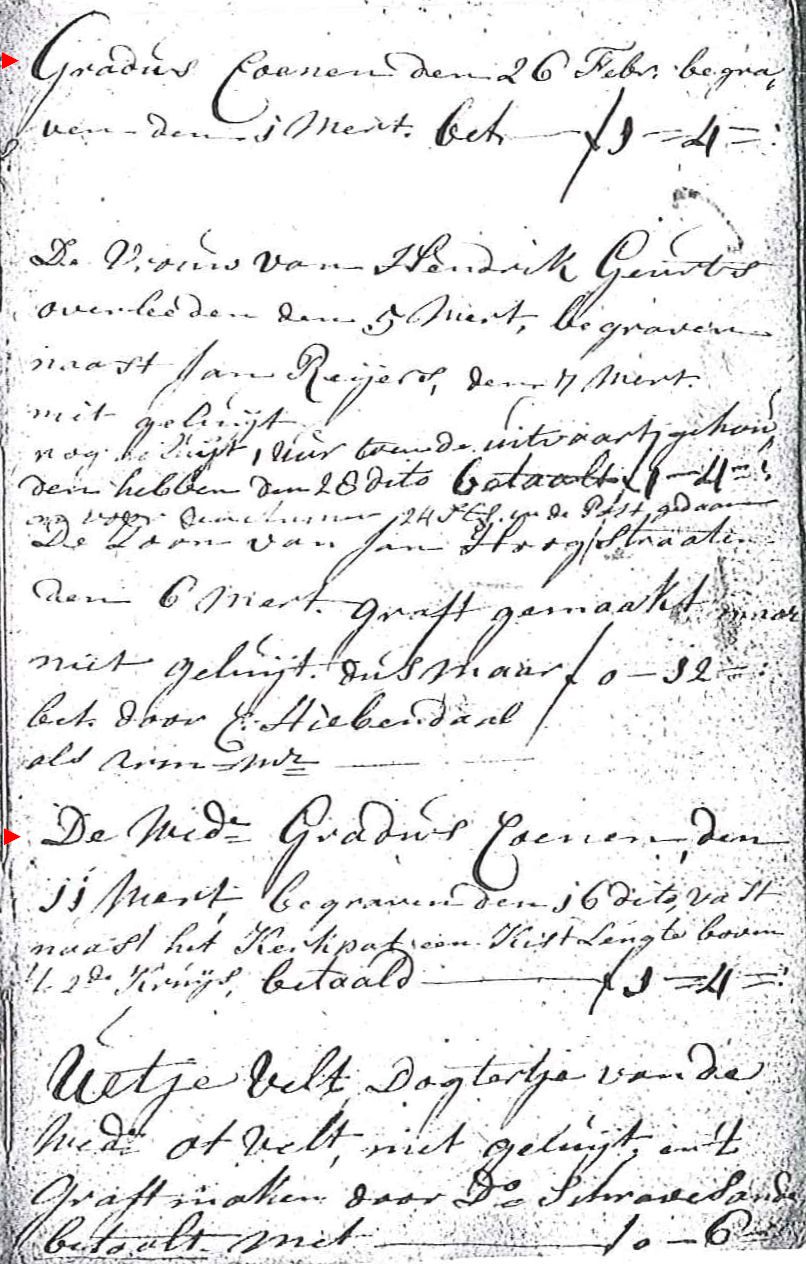 Gradus Coenen den 26 Febr. begra,
ven den 1 Mert. bet. ƒ 1 = 4 = :
De Vrouw van Hendrik Geurts
overleeden den 5 Mert, begraven
naast Jan Reijers, den 7 Mert.
nit geluijt
nog geluijt, uur toen de uitvaart gehou,
den hebben den 28 dito betaalt ƒ 1 - 4 = :
24 Sts. in de Post gedaan
De Zoon van Jan Hoogstraaten
den 6 Mert. graft gemaakt maar
niet geluijt. dus maar ƒ 0 - 12 = :
bet. door C: Hiebendaal
als Arm-Mr
De Wede Gradus Coenen, den
11 Mert, begraven den 16 dito, vast
naast het Kerkpat een Kist Lengte boven
't 2de Kruijs, betaald ƒ 1 = 4 = :
Uetje Velt, Dogtertje van de
Wede ot Velt, niet geluijt, en 't
Graftmaken door Do Schravesande
betaalt met ƒ 0 - 6 =